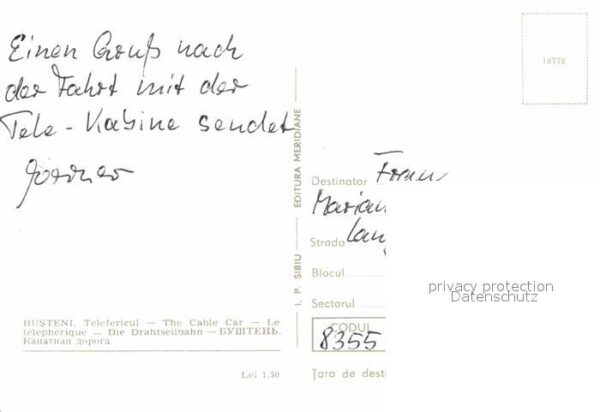 Einen Gruß nach
der Fahrt mit der
Tele-Kabine sendet
18778
I. P. SIBIU — EDITURA MERIDIANE
Destinatar
Strada
Blocul
Sectorul
CODUL
8355
Țara de dest
privacy protection
Datenschutz
BUȘTENI. Telefericul — The Cable Car — Le
téléphérique — Die Drahtseilbahn — БУШТЕНЬ.
Канатная дорога
Lei 1,50